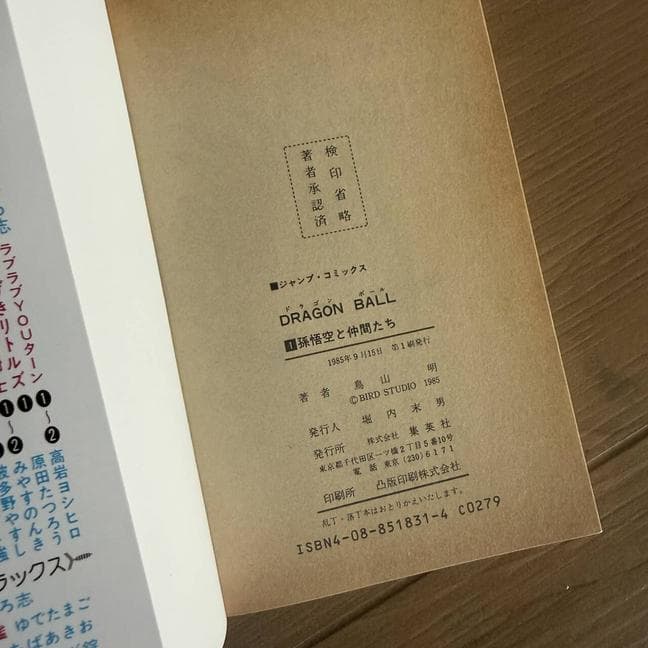 検印省略
著者承認済
■ジャンプ・コミックス
ドラゴン ボール
DRAGON BALL
1孫悟空と仲間たち
1985年9月15日 第1刷発行
著者 鳥山 明
©BIRD STUDIO 1985
発行人 堀内末男
発行所 株式会社 集英社
東京都千代田区一ツ橋2丁目5番10号
電話 東京(230)6171
印刷所 凸版印刷株式会社
乱丁・落丁本はおとりかえいたします。
ISBN4-08-851831-4 C0279
ラブラブYOUターン
リトルズ
❶
❶
❶〜❷
高岩ヨシヒロ
原田たつろう
みやすのんき
ラックス
ろ志
ゆでたまご
ばあきお